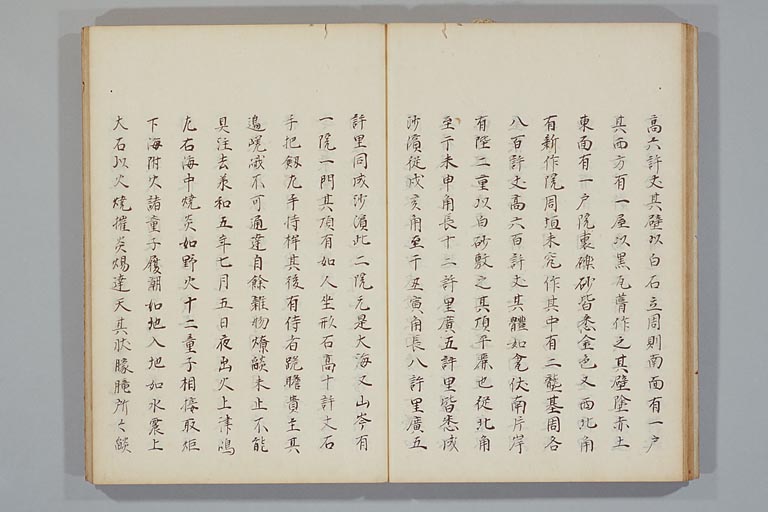 高六許丈其壁以白石立周則南面有一戸
其西方有一屋以黒瓦葺作之其壁塗赤土
東面有一戸院裏礫砂皆悉金色又西北角
有新作院周垣未究作其中有二𡺸基周各
八百許丈高六百許丈其體如瓮伏南片岸
有階二重以白砂敷之其頂平麗也従北角
至于未申角長十二許里廣五許里皆悉成
沙濱従戌亥角至于丑寅角長八許里廣五
許里同成沙濱此二院元是大海又山岑有
一院一門其頂有如人坐形石高十許丈石
手把釼九手持桙其後有侍者跪瞻貴主其
邉嵯峨不可通達自餘雜物燎燄未止不能
具注去承和五年七月五日夜出火上津嶋
九右海中燒炎如野火十二童子相接取炬
下海附火諸童子履潮如地入地如水震上
大石以火燒摧炎煬達天其状朦朧所々燄